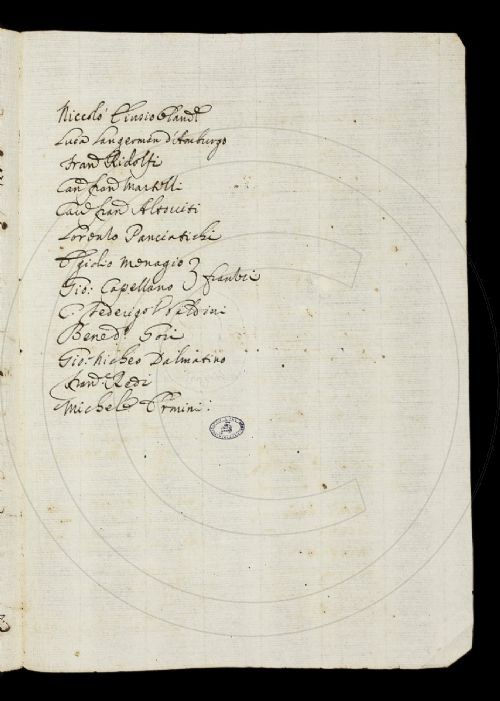 Niccolò Einsio Oland.
Luca Langerman d'Amburgo
Fran.o Ridolfi
Can. Fran.o Martelli
Cav. Fran.o Altoviti
Lorenzo Panciatichi
Egidio Menagio } franzesi
Gio: Capellano
C. Federigo Valdini
Bened.o Gori
Gio: Dalmatino
Fran.o Redi
Michele Ermini: